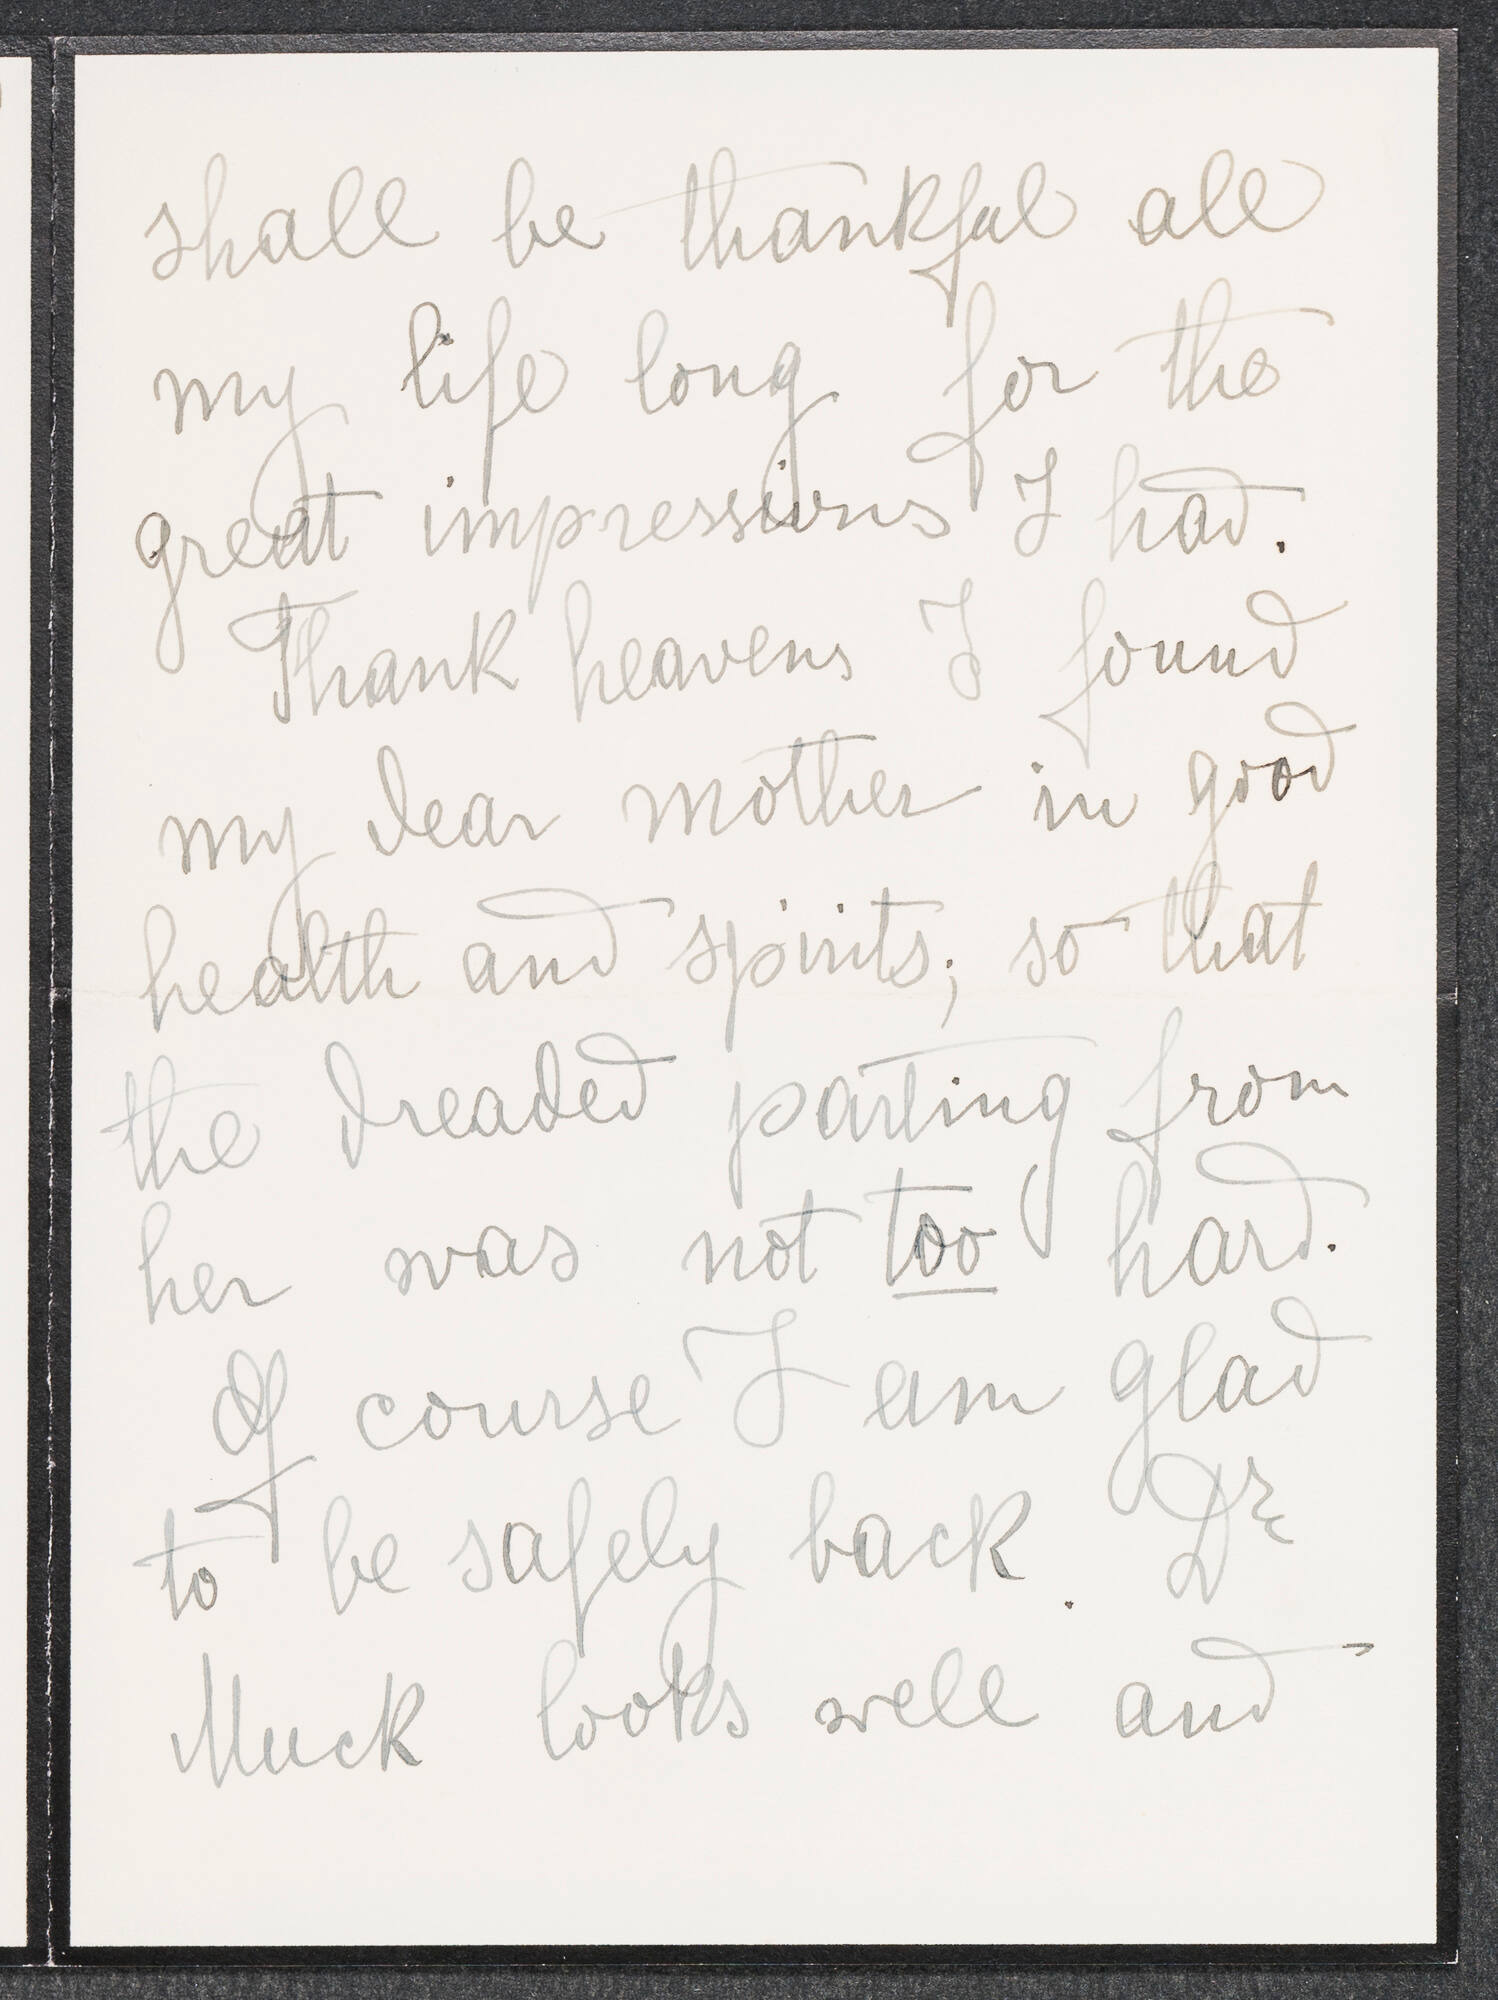 shall be thankful all
my life long for the
great impressions I had.
Thank heavens I found
my dear mother in good
health and spirits; so that
the dreaded parting from
her was not too hard.
Of course I am glad
to be safely back. Dr
Muck looks well and